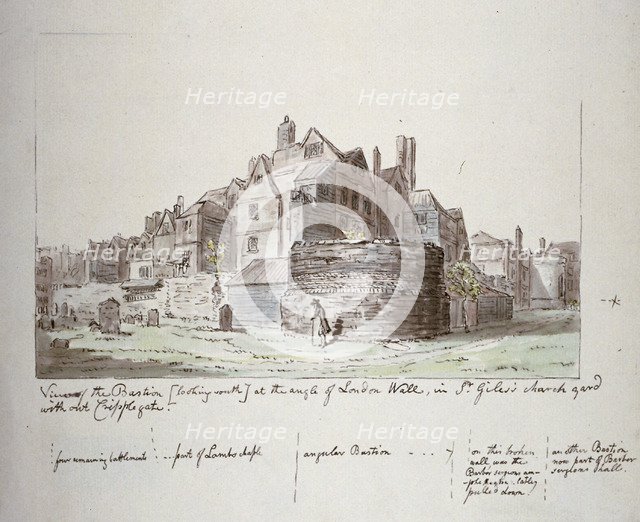 Heritage Heritage
Heritage Heritage Heritage
View of the Bastion [looking south] at the angle of London Wall, in St. Giles's church yard
with out Cripplegate.
four remaining battlements
part of Lambs chaple
angular Bastion
on this broken
wall was the
Barber surgions am-
phe theatre. lately
pulled down.
another Bastion
now part of Barber
surgions hall.
Heritage Heritage Heritage